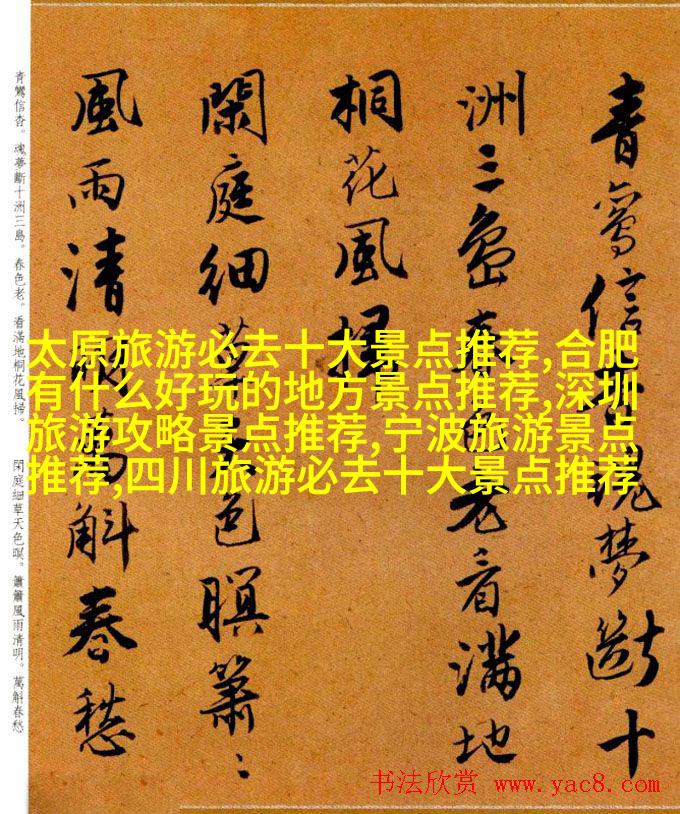 青鸞信杳魂夢斷十
洲三島春色老看滿地
桐花風掃
閑庭細草天色暝簫〻
風雨清明萬斛春愁
青鸞信杳。魂夢斷十洲三島。春色老。看滿地桐花風掃。 閑庭細草天色暝。簫簫風雨清明。萬斛春愁
太原旅游必去十大景点推荐,合肥
有什么好玩的地方景点推荐,深圳
旅游攻略景点推荐,宁波旅游景点
推荐,四川旅游必去十大景点推荐
书法欣赏 www.yac8.com